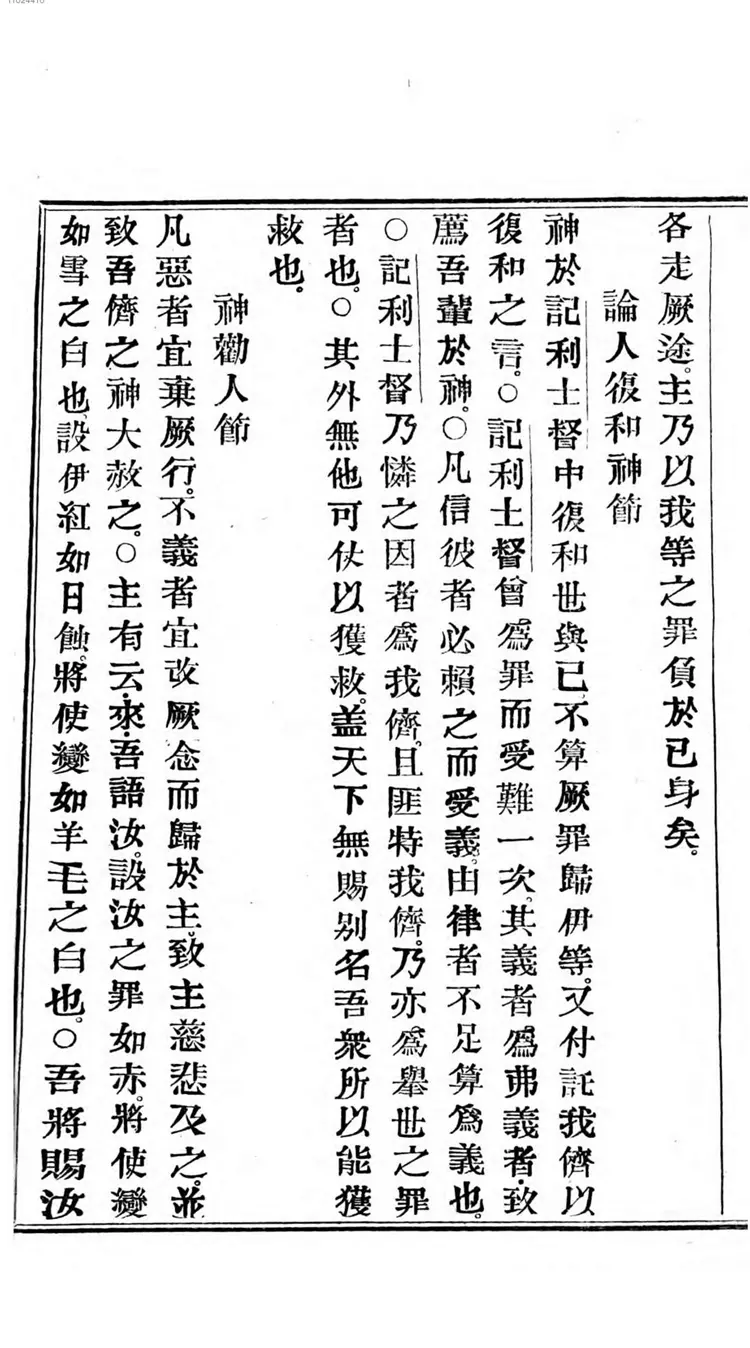 11024410
各走厥途。主乃以我等之罪負於己身矣。
論人復和神節
神於記利士督中復和世與己、不算厥罪歸伊等。又付託我儕以
復和之言。○記利士督曾爲罪而受難一次、其義者爲弗義者、致
薦吾輩於神。○凡信彼者必賴之而受義。由律者不足算爲義也。
○記利士督乃憐之因者爲我儕。且匪特我儕。乃亦爲舉世之罪
者也。○其外無他可仗以獲救。盖天下無賜别名吾衆所以能獲
救也。
神勸人節
凡惡者宜棄厥行。不義者宜改厥念而歸於主。致主慈悲及之。並
致吾儕之神大赦之。○主有云、來、吾語汝。設汝之罪如赤。將使變
如雪之白也、設伊紅如日蝕。將使變如羊毛之白也。○吾將賜汝